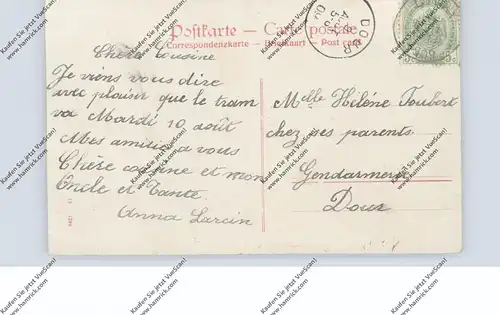 Postkarte – Carte postale
Correspondenzkarte – Briefkaart – Post card
Chère Cousine
Je viens vous dire
avec plaisir que le tram
va Mardi 10 août
Mes amitiés a vous
Chère cousine et mon
Oncle et Tante.
Anna Larcin
Melle Hélène Foubert
chez ses parents
Gendarmerie
Dour
DOUR
Kaufen Sie jetzt VueScan!
www.hamrick.com